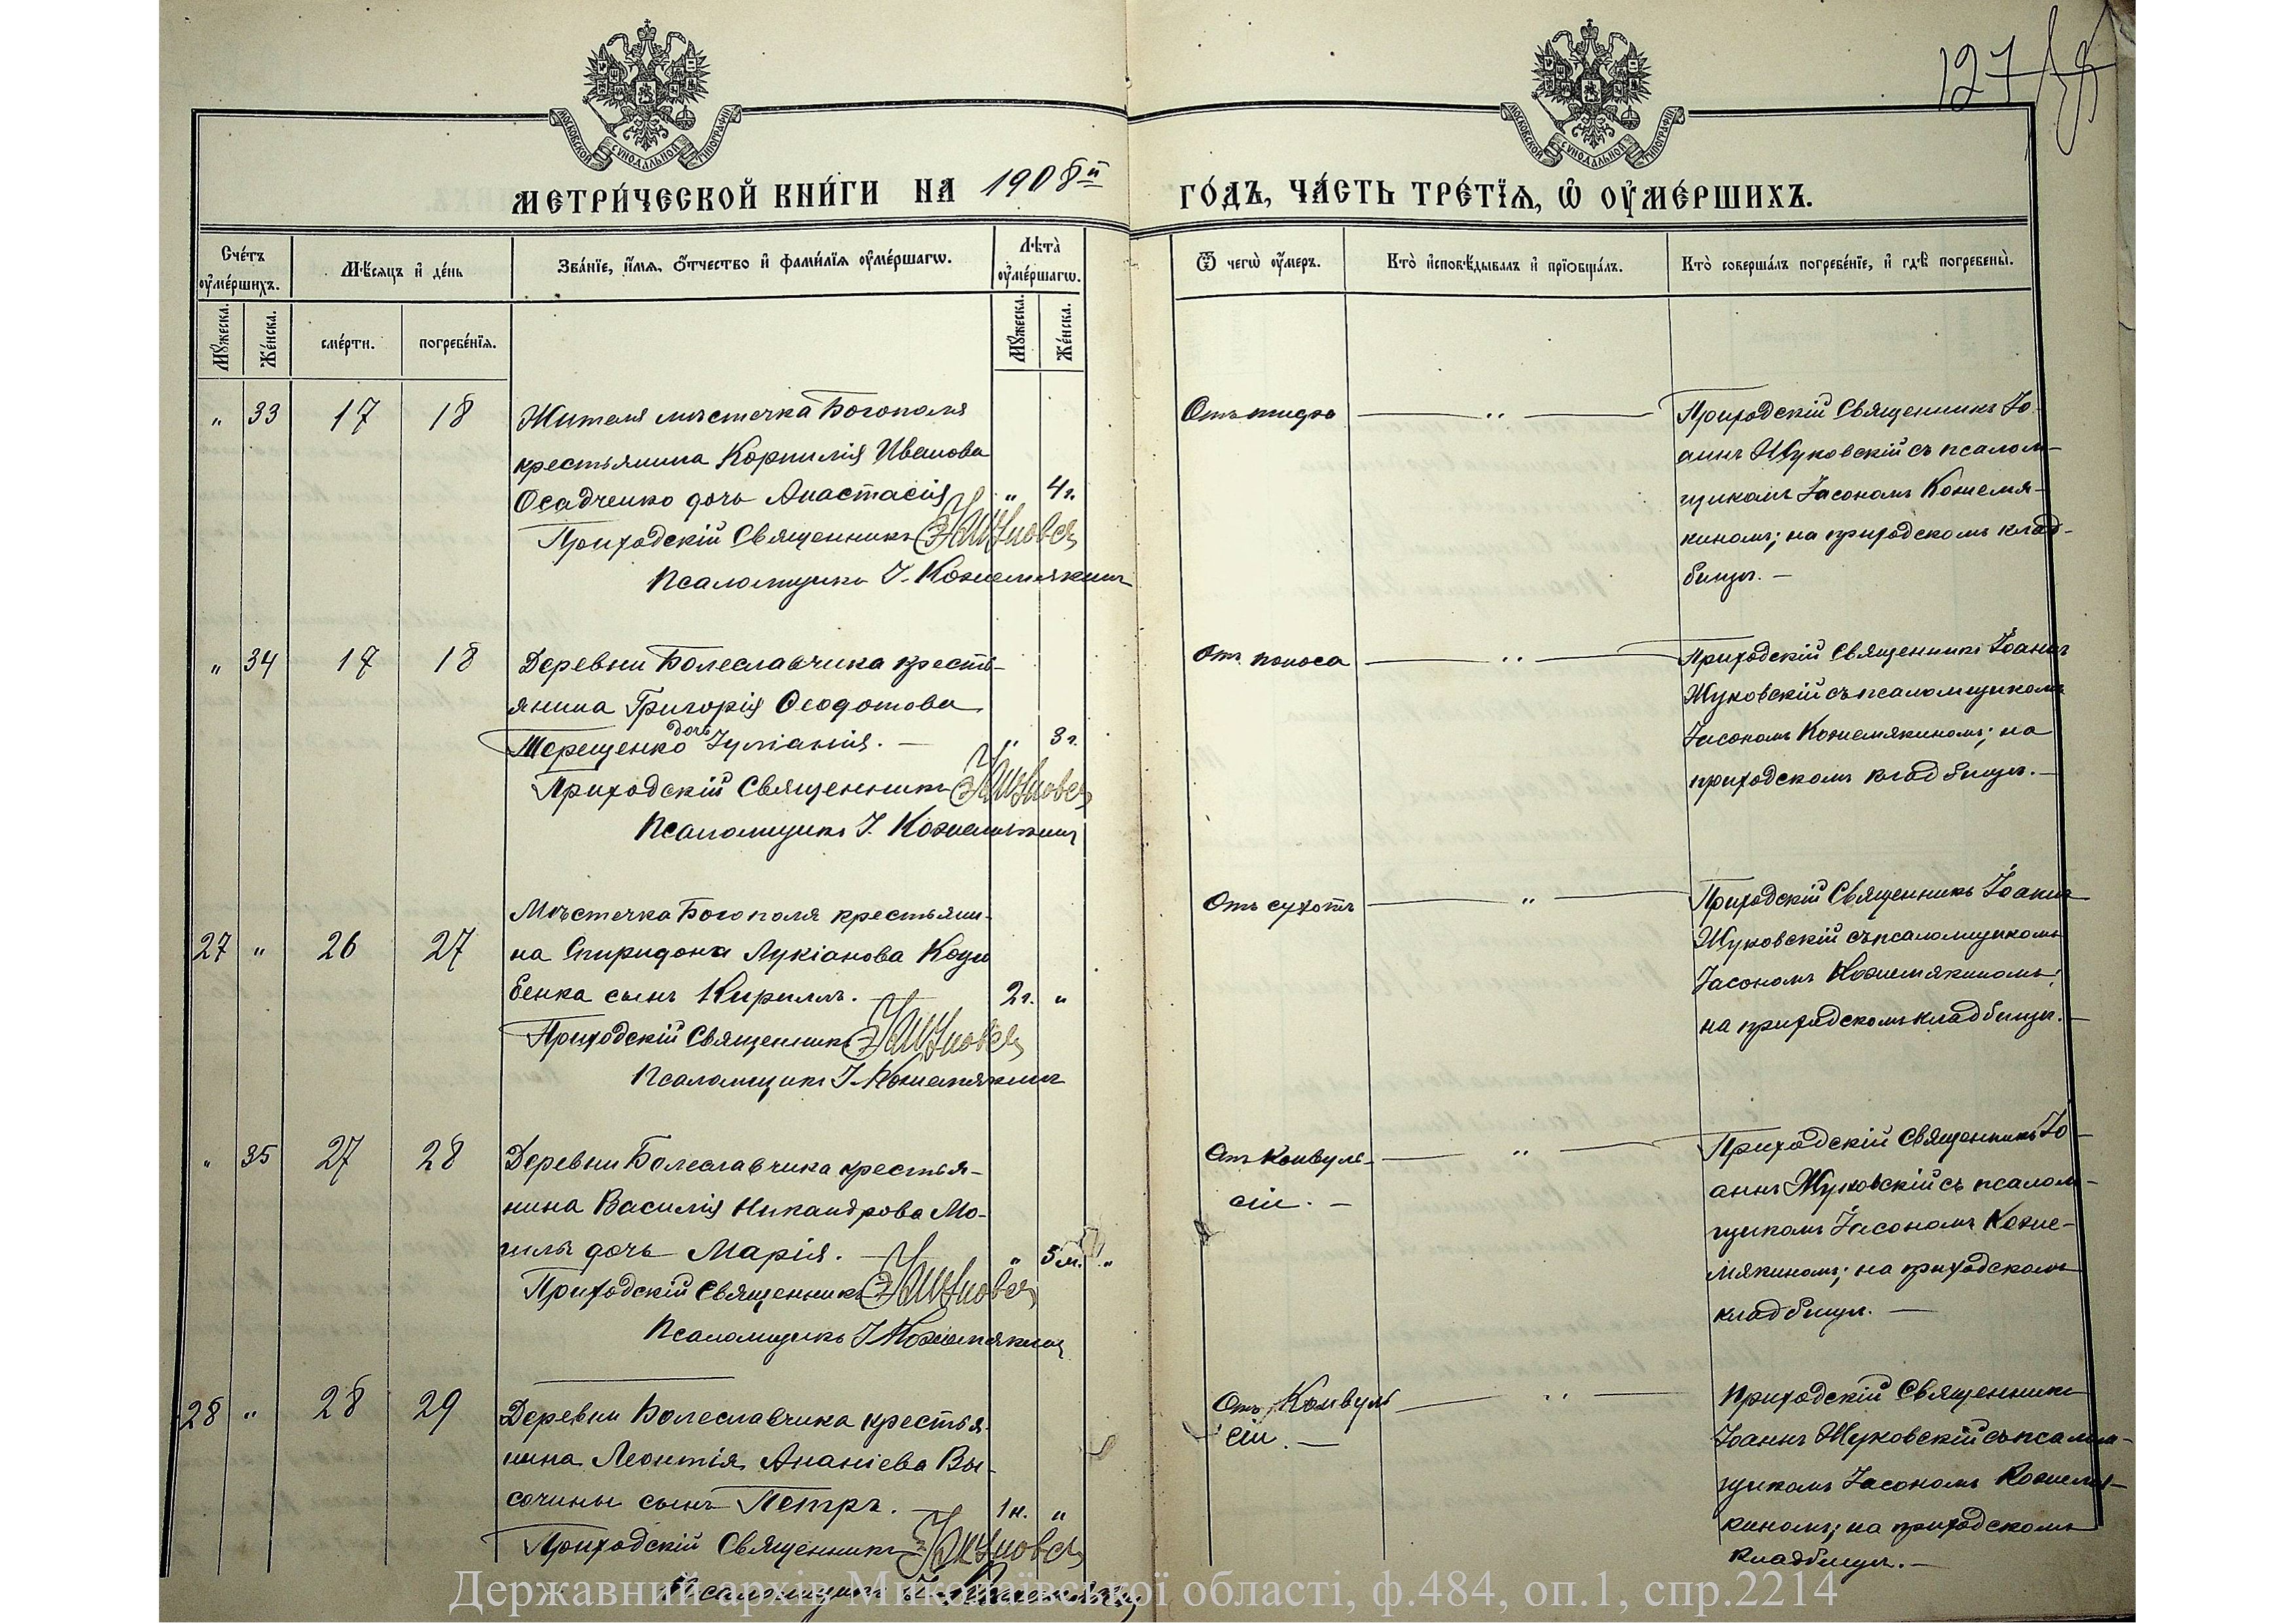 127
МОСКОВСКОЙ СѴНОДАЛЬНОЙ ТИПОГРАФІИ.
МОСКОВСКОЙ СѴНОДАЛЬНОЙ ТИПОГРАФІИ.
МЕТРИ́ЧЕСКОЙ КНИ́ГИ НА 1908й ГО́ДЪ, ЧА́СТЬ ТРЕ́ТЇѦ, Ѡ҆ ОУ҆МЕ́РШИХЪ.
Сче́тъ оу҆ме́ршихъ.
Мѣ́сѧцъ и҆ де́нь
Зва́нїе, и҆́мѧ, ѻ҆́тчество и҆ фами́лїѧ оу҆ме́ршагѡ.
Лѣта̀ оу҆ме́ршагѡ.
Ѿ чегѡ̀ оу҆́меръ.
Кто̀ и҆сповѣ́дывалъ и҆ прїѡбща́лъ.
Кто̀ соверша́лъ погребе́нїе, и҆ гдѣ̀ погребены̀.
Мꙋ́жеска.
Же́нска.
сме́рти.
погребе́нїѧ.
Мꙋ́жеска.
Же́нска.
„ 33 17 18
Жителя мѣстечка Богополя
крестьянина Корнилія Иванова
Осадченко дочь Анастасія „ 4 г.
Приходскій Священникъ
Псаломщикъ І. Кожемякинъ
Отъ тифа „
Приходскій Священникъ Іо-
аннъ Жуковскій съ псалом-
щикомъ Іасономъ Кожемя-
кинымъ; на приходскомъ клад-
бищѣ. —
„ 34 17 18
Деревни Болеславчика кресть-
янина Григорія Ѳеодотова
Терещенко дочь Іуліанія. — „ 3 г.
Приходскій Священникъ
Псаломщикъ І. Кожемякинъ
Отъ поноса „
Приходскій Священникъ Іоаннъ
Жуковскій съ псаломщикомъ
Іасономъ Кожемякиномъ; на
приходскомъ кладбищѣ. —
27 „ 26 27
Мѣстечка Богополя крестьяни-
на Спиридона Лукіанова Коцю
бенка сынъ Кириллъ. — 2 г. „
Приходскій Священникъ
Псаломщикъ І. Кожемякинъ
Отъ сухотъ „
Приходскій Священникъ Іоаннъ
Жуковскій съ псаломщикомъ
Іасономъ Кожемякиномъ;
на приходскомъ кладбищѣ. —
„ 35 27 28
Деревни Болеславчика крестья-
нина Василія Никандрова Мо-
гилы дочь Марія. — „ 5 м. „
Приходскій Священникъ
Псаломщикъ І. Кожемякинъ
Отъ конвуль-
сіи. — „
Приходскій Священникъ Іо-
аннъ Жуковскій съ псалом-
щикомъ Іасономъ Коже-
мякиномъ; на приходскомъ
кладбищѣ. —
28 „ 28 29
Деревни Болеславчика крестья-
нина Леонтія Ананіева Вы-
сочины сынъ Петръ. — 1 н. „
Приходскій Священникъ
Псаломщикъ
Отъ Конвуль
сіи. — „
Приходскій Священникъ
Іоаннъ Жуковскій съ псалом-
щикомъ Іасономъ Кожемя-
киномъ; на приходскомъ
кладбищѣ. —
Державний архів Миколаївської області, ф.484, оп.1, спр.2214